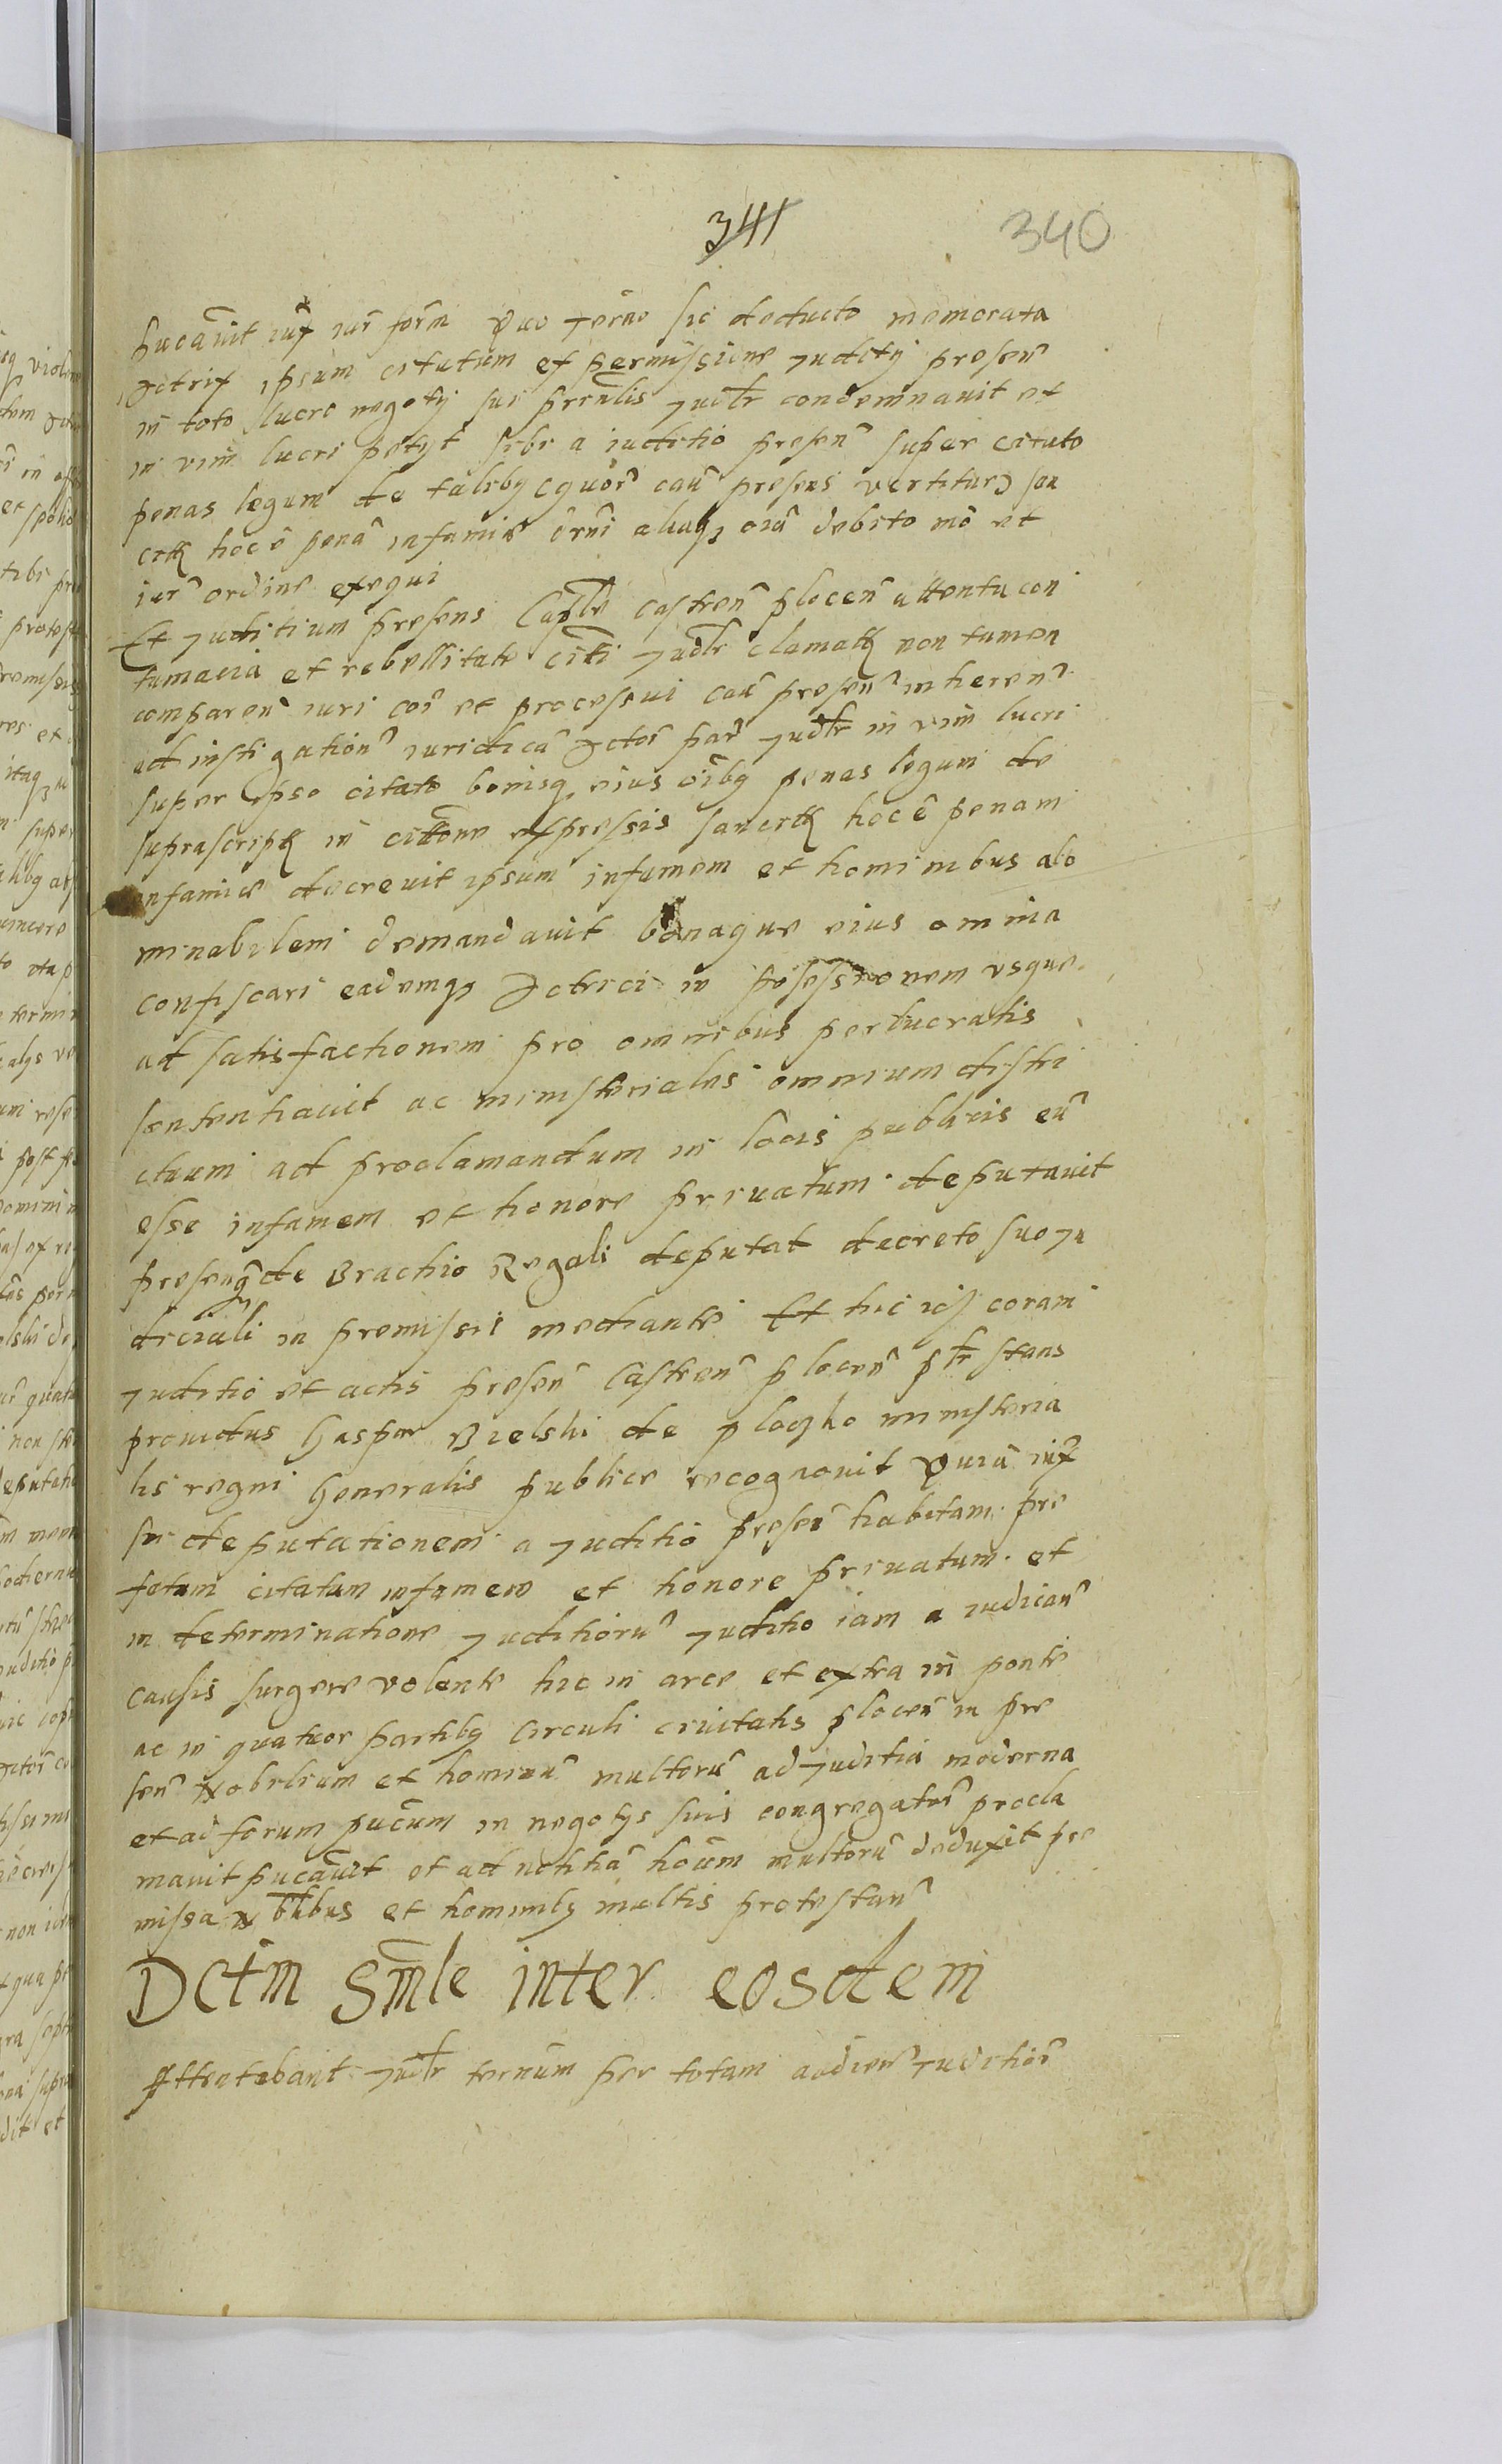 341 340
pucauit iux iur form Quo termo sic deducto memorata
Actrix ipsum citatum ex permissione Juditÿ presen
in toto lucro negotÿ sui prencialis Judlr condemnauit et
in vim lucri petÿt sibi a iuditio presen super citato
penas legum de talibq quor cau presens vertitur san
citas hoc e pena infamie omi aliaqz oia debito mo et
iur ordine exequi
Et Juditium presens Caple castren plocen attenta con
tumacia et rebellitate citi Judlr clamati non tamen
comparen iuri coi et processui cau presen inheren
ad instigation iuridica Actor par Judlr in vim lucri
super ipso citato bonisq eius oibq penas legum de
suprascriptas in citatione expressis sancitas hoc e penam
infamie decreuit ipsum infamem et hominibus abo
minabilem demandauit bonaque eius omnia
confiscari eademqz Actrici in possessionem vsque
ad satisfactionem pro omnibus perlucratis
sententiauit ac ministeriales omnium distri
ctuum ad proclamandum in locis publicis eu
esse infamem et honore priuatum deputauit
presenq de Brachio Regali deputat decreto suo Ju
diciali in premissis mediante Et hic ids coram
Juditio et actis presen Castren plocen ptr stans
prouidus Gaspar Bielski de ploczko ministeria
lis regni Generalis publice recognouit Quia iux
sui deputationem a Juditio presen habitam pre
fatum citatum infamem et honore priuatum et
in determinatione Juditioru Juditio iam a iudican
causis surgere volente hic in arce et extra in ponte
ac in quatuor partibq circuli ciuitatis plocen in pre
sen Nobilium et hominu multoru ad Juditia moderna
et ad forum pucum in negotÿs suis congregator procla
mauit pucauit et ad notitia hoium multoru deduxit pre
missa Nblibus et hominibq multis protestan
Dctm Smle inter eosdem
Attentabant Judlr ternum per totam audien Juditior